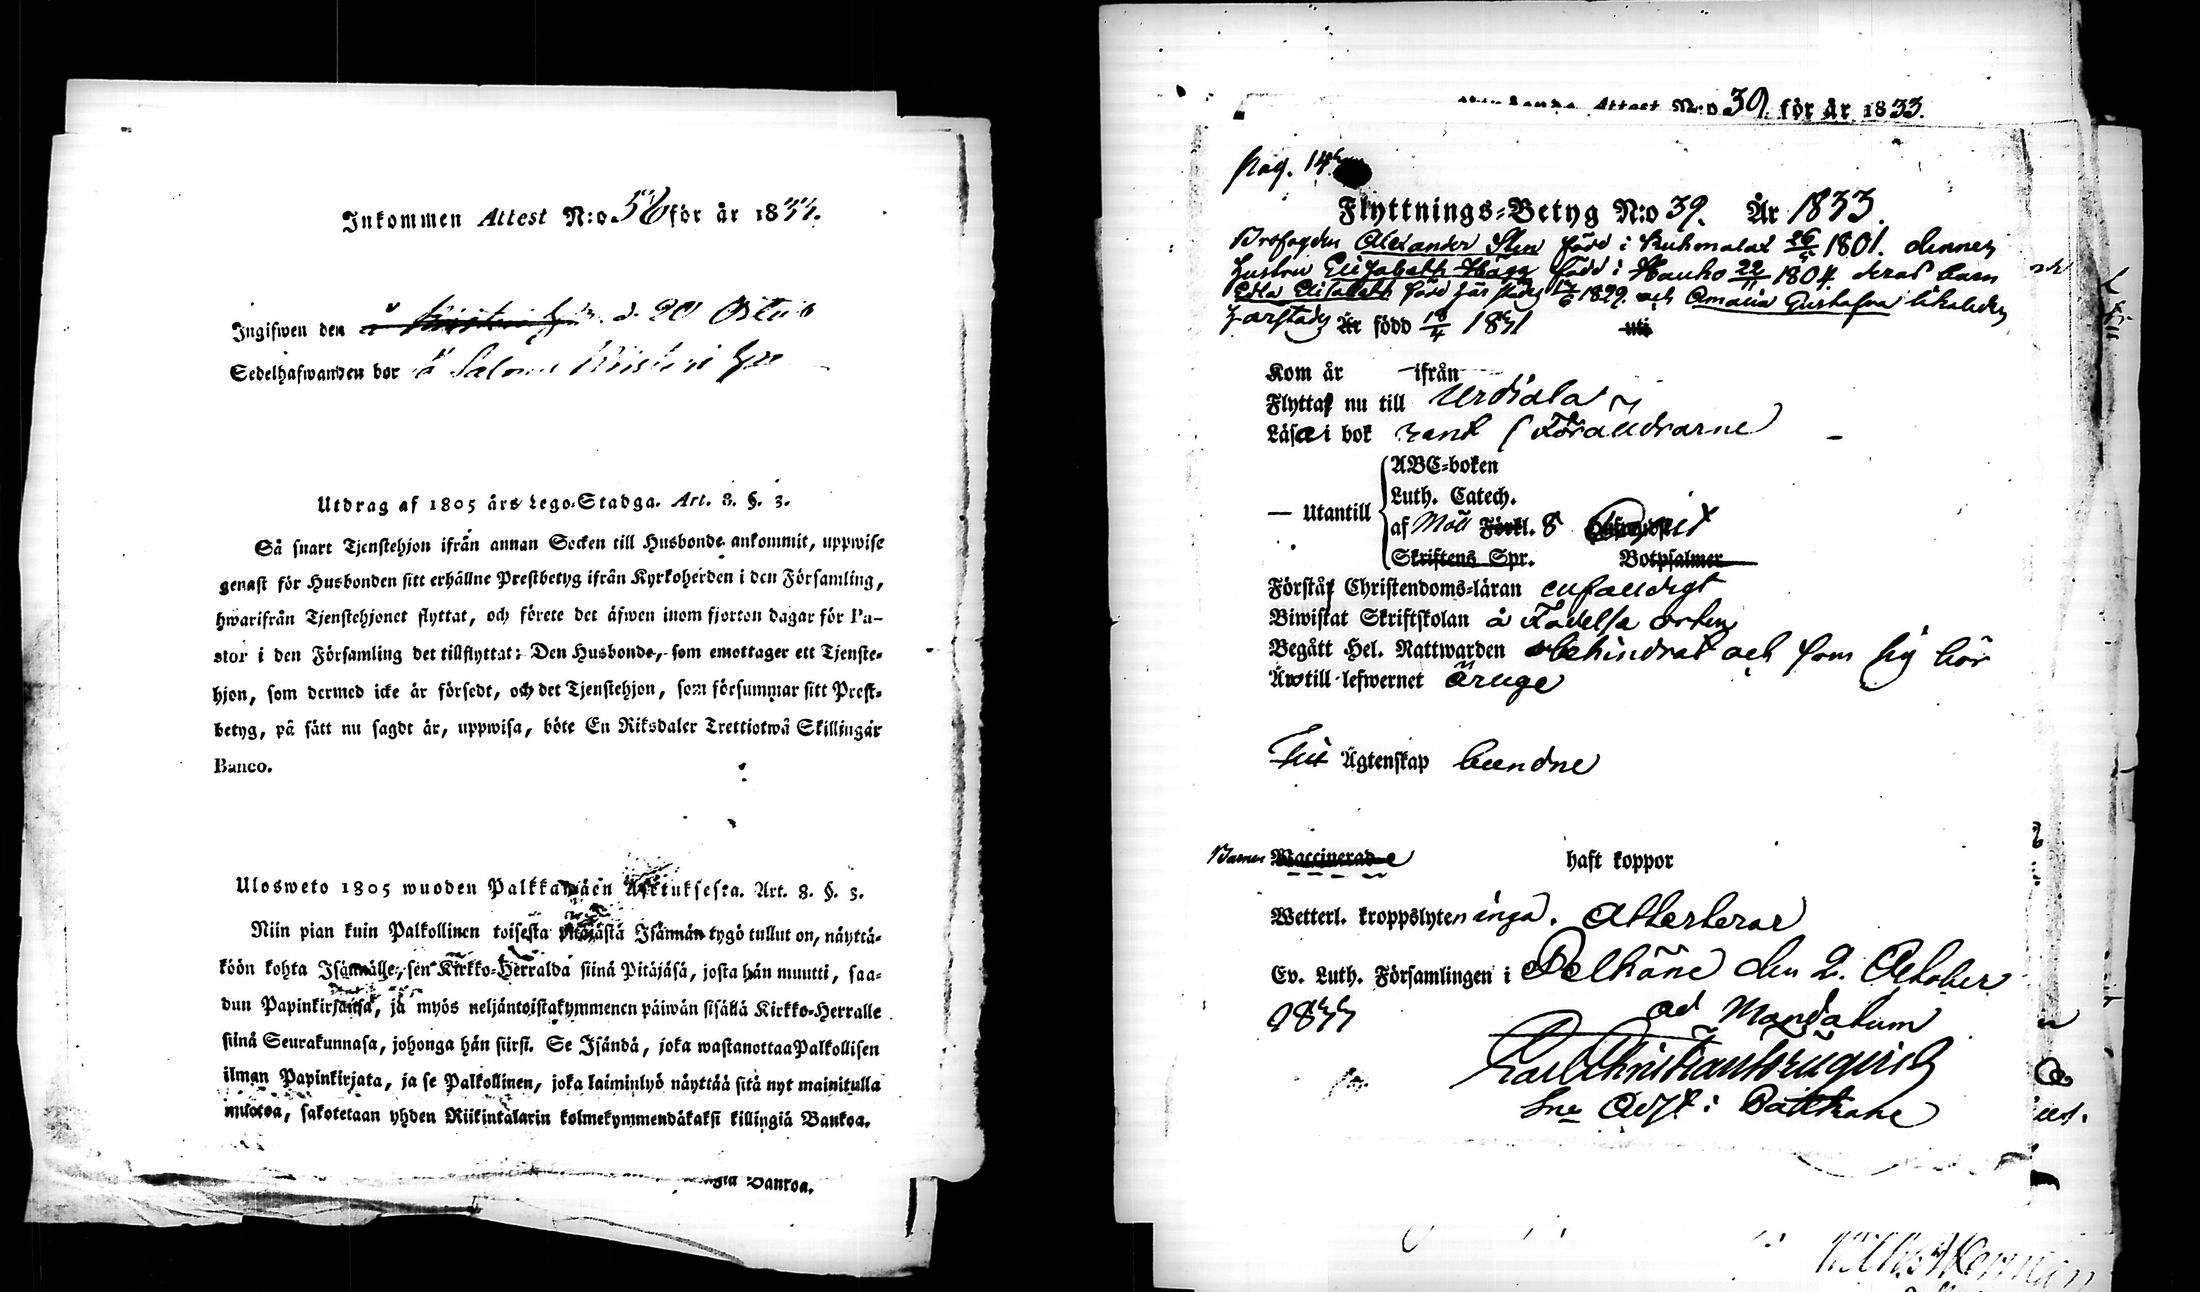 Inkommen Attest N:o 56 för år 1833.
Ingifwen den d. 20
Sedelhafwanden bor å
Utdrag af 1805 års Lego-Stadga. Art. 8. §. 3.
Så snart Tjenstehjon ifrån annan Socken till Husbonde ankommit, uppwise
genast för Husbonden sitt erhållne Prestbetyg ifrån Kyrkoherden i den Församling,
hwarifrån Tjenstehjonet flyttat, och förete det äfwen inom fjorton dagar för Pa-
stor i den Församling det tillflyttat: Den Husbonde, som emottager ett Tjenste-
hjon, som dermed icke är försedt, och det Tjenstehjon, som försummar sitt Prest-
betyg, på sätt nu sagdt är, uppwisa, böte En Riksdaler Trettiotwå Skillingar
Banco.
Ulosweto 1805 wuoden Palkkawäen Asetuksesta. Art. 8. §. 3.
Niin pian kuin Palkollinen toisesta pitäjästä Isännän tygö tullut on, näyttä-
köön kohta Isännälle, sen Kirkko-Herralda siinä Pitäjäsä, josta hän muutti, saa-
dun Papinkirjansa, ja myös neljäntoistakymmenen päiwän sisällä Kirkko-Herralle
siinä Seurakunnasa, johonga hän siirsi. Se Isändä, joka wastanottaa Palkollisen
ilman Papinkirjata, ja se Palkollinen, joka laiminlyö näyttää sitä nyt mainitulla
muotoa, sakotetaan yhden Riikintalarin kolmekymmendäkaksi killingiä Bankoa.
Bankoa.
Attest N:o 39 för år 1833.
pag. 14
Flyttnings-Betyg N:o 39. År 1833.
Alexander Sten född i Kuhmalax 26/5 1801. dennes
hustru Elisabeth Hägg född i Hauho 22/11 1804. deras barn
Edla Elisabeth född här städes 17/6 1829. och Amalia Gustafva likaledes
härstädes Är född 18/4 1831 uti
Kom år ifrån
Flyttas nu till Urdiala
Läsa i bok rent Föräldrarne
Utantill
ABC-boken
Luth. Catech.
af Möll Förkl. 8
Skriftens Spr. Botpsalmer
Förstås Christendoms-läran enfaldigt
Biwistat Skriftskolan å Födelse orten
Begått Hel. Nattwarden obehindrat och som sig bör
Är till lefwernet ärlige
Till Ägtenskap bundne
Barnen Waccinerade haft koppor
Wetterl. kroppslyten inga. Attesterar
Ev. Luth. Församlingen i Pelkäne den 2. October
1833
ad Mandatum